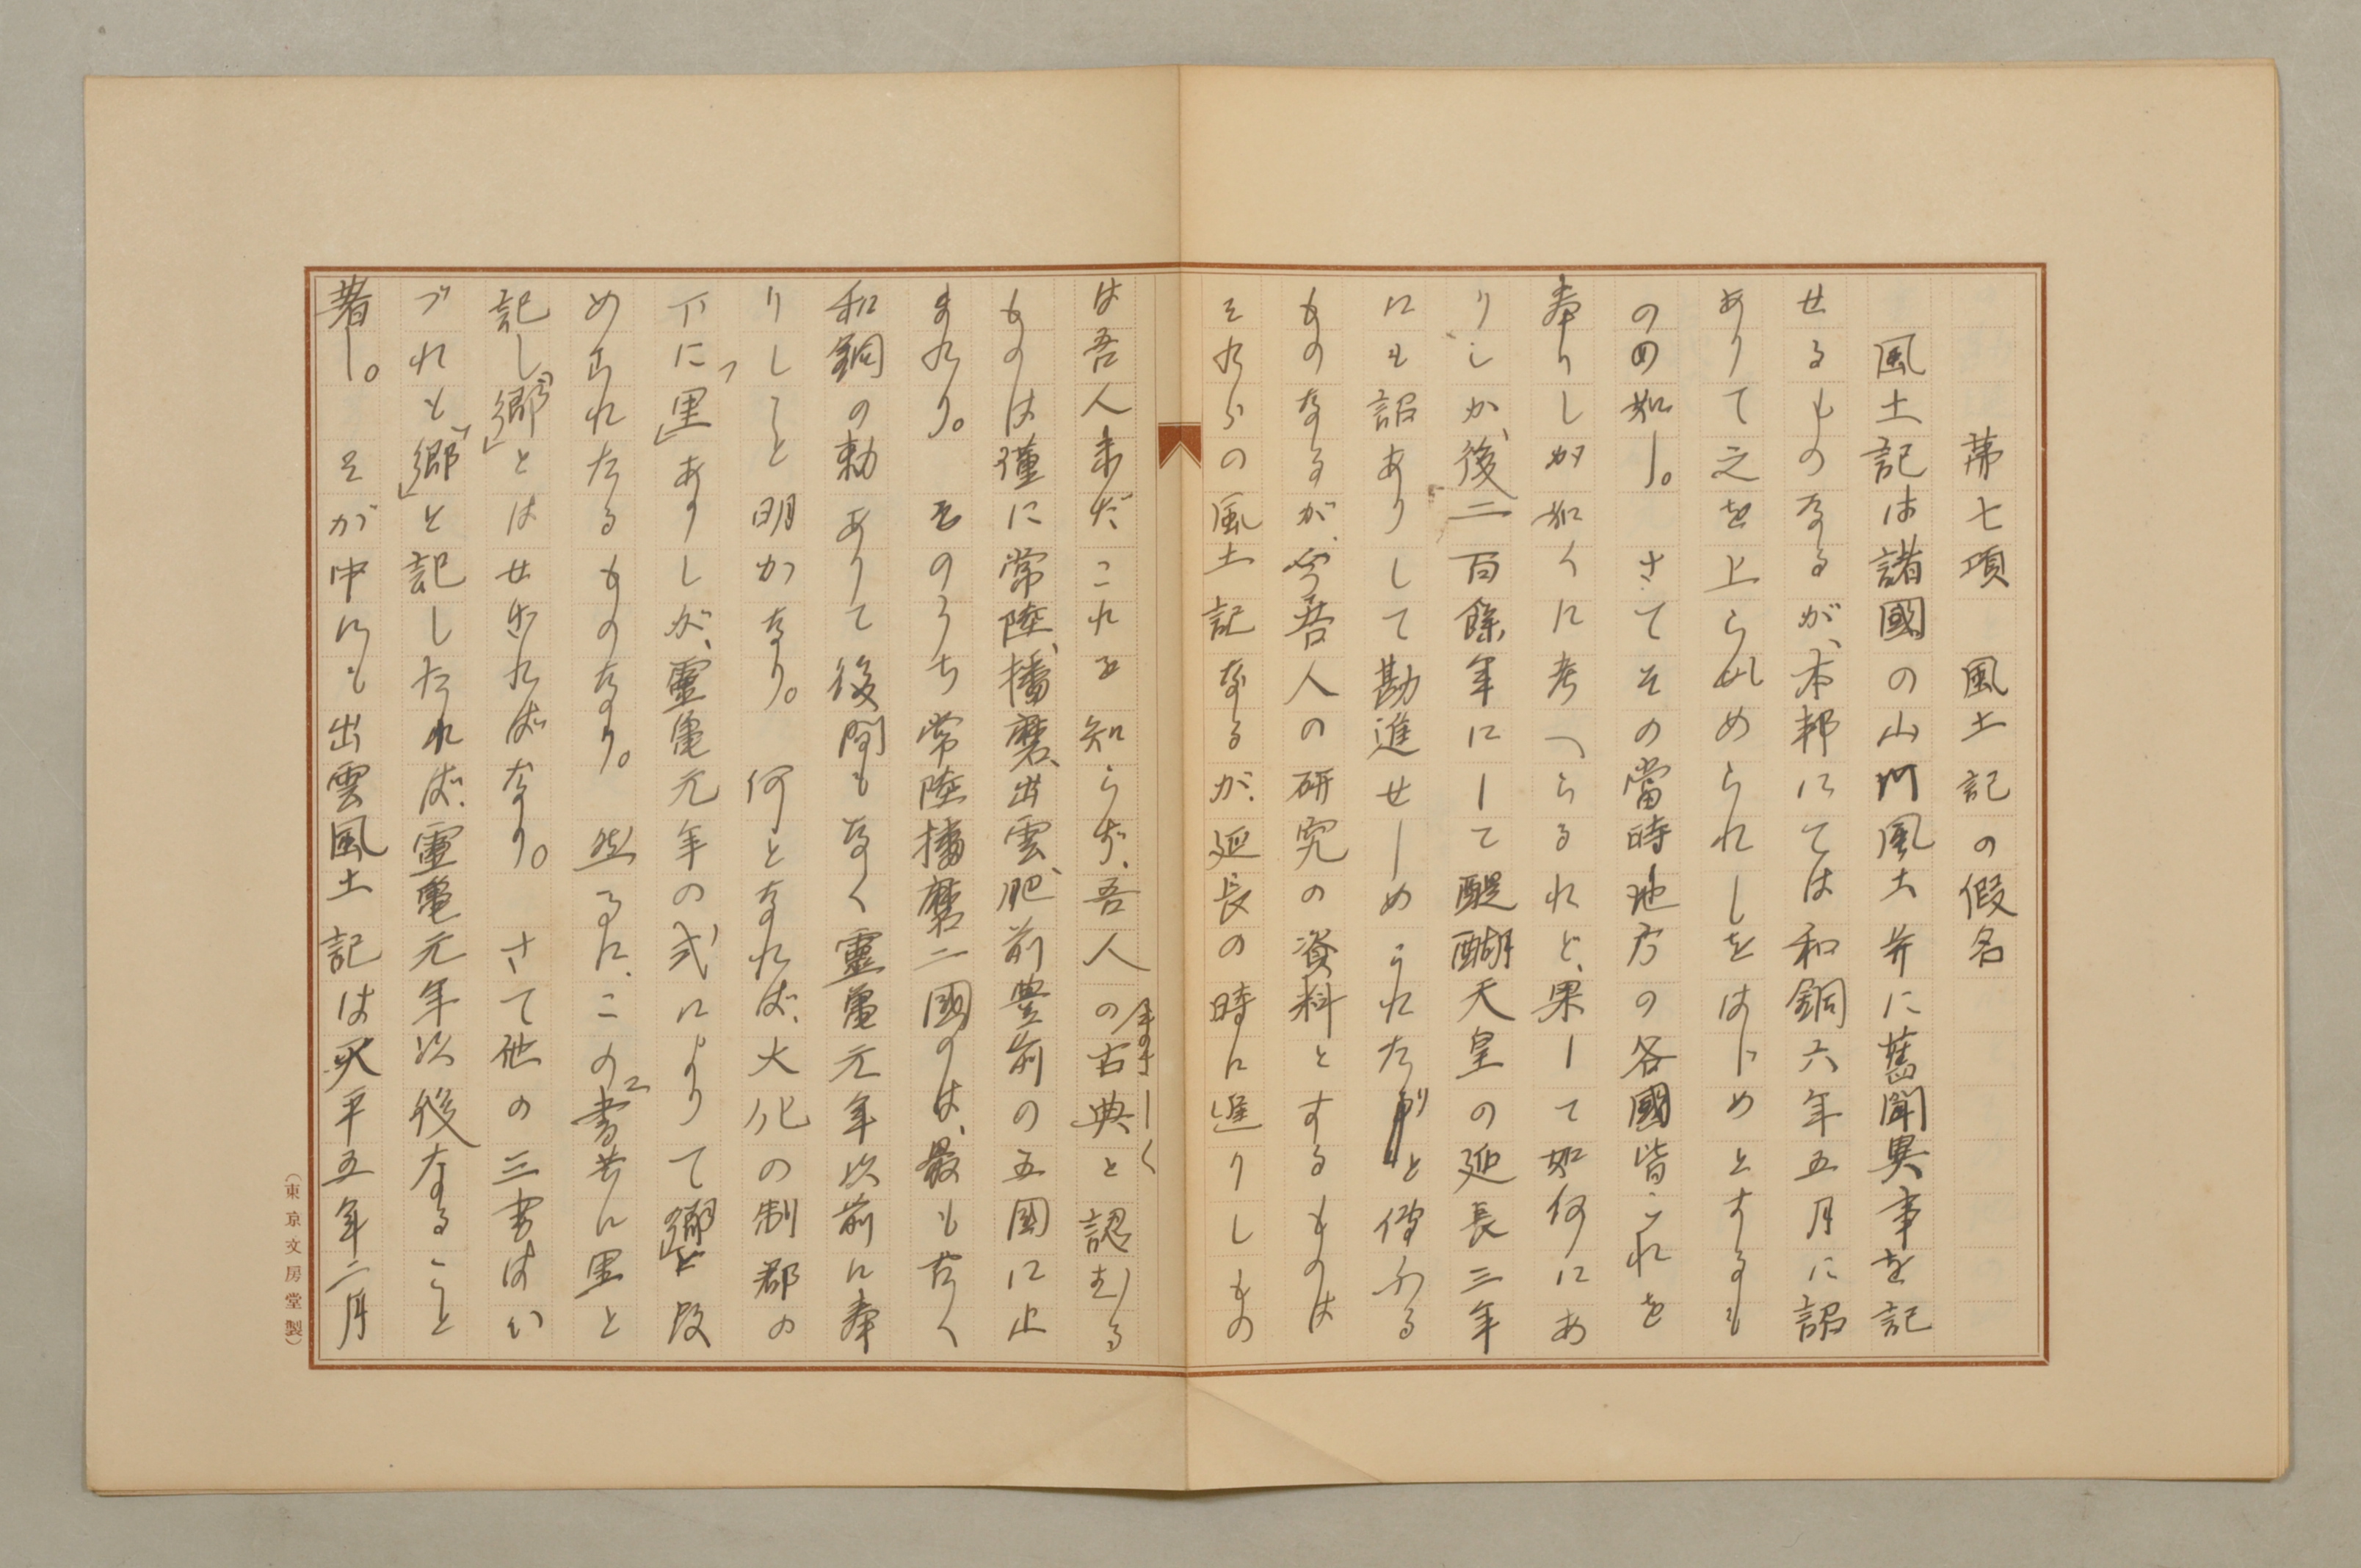 第七項　風土記の假名
風土記は諸國の山川風土并に舊聞異事を記
せるものなるが、本邦にては和銅六年五月に詔
ありて之を上らしめられしをはじめとするも
のゝ如し。さてその當時地方の各國皆これを
奉りしが如くに考へらるれど、果して如何にあ
りしか、後二百餘年にして醍醐天皇の延長三年
にも詔ありして勘進せしめられたりと傳ふる
ものなるが、今吾人の研究の資料とするものは
それらの風土記なるが、延長の時に進りしもの
は吾人未だこれを知らず、吾人の等しく古典と認むる
ものは僅に常陸、播磨、出雲、肥前豊前の五國に止
まれり。そのうち常陸播磨二國のは、最も古く
和銅の勅ありて後間もなく靈亀元年以前に奉
りしこと明かなり。何となれば、大化の制郡の
下に「里」ありしが、靈亀元年の式によりて「郷」と改
められたるものなり。然るに、この二書共に里と
記し「郷」とはせざればなり。さて他の三書はい
づれも「郷」と記したれば、靈亀元年以後なること
著し。そが中にも出雲風土記は天平五年二月
（東京文房堂製）